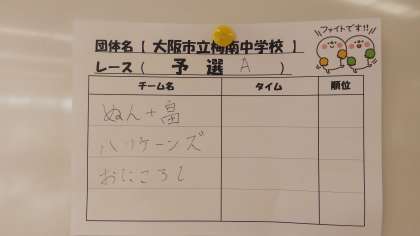 ファイトです!!
団体名【 大阪市立梅南中学校 】
レース( 予選 A )
チーム名 タイム 順位
ぬん+畠
ハリケーンズ
おにころし